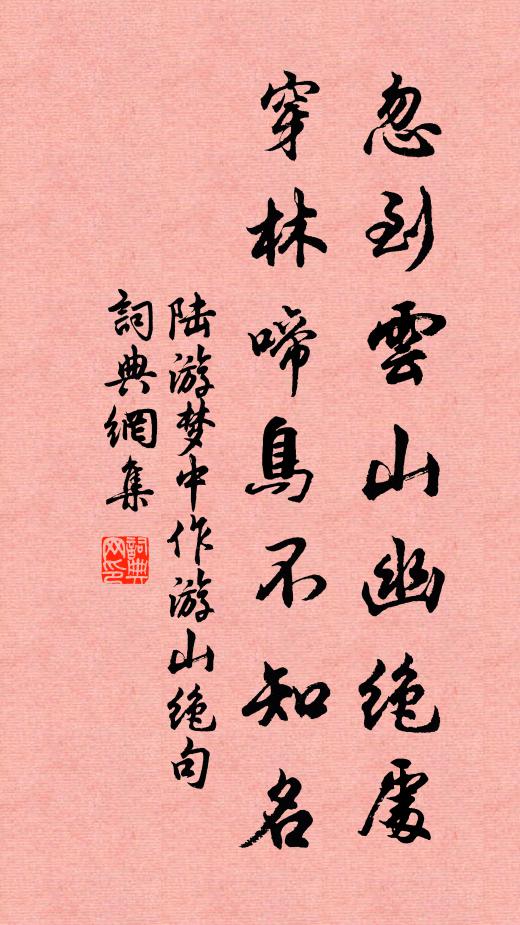 忽到雲山幽絶處
穿林啼鳥不知名
陆游梦中作游山绝句
詞典網集
詞典網印